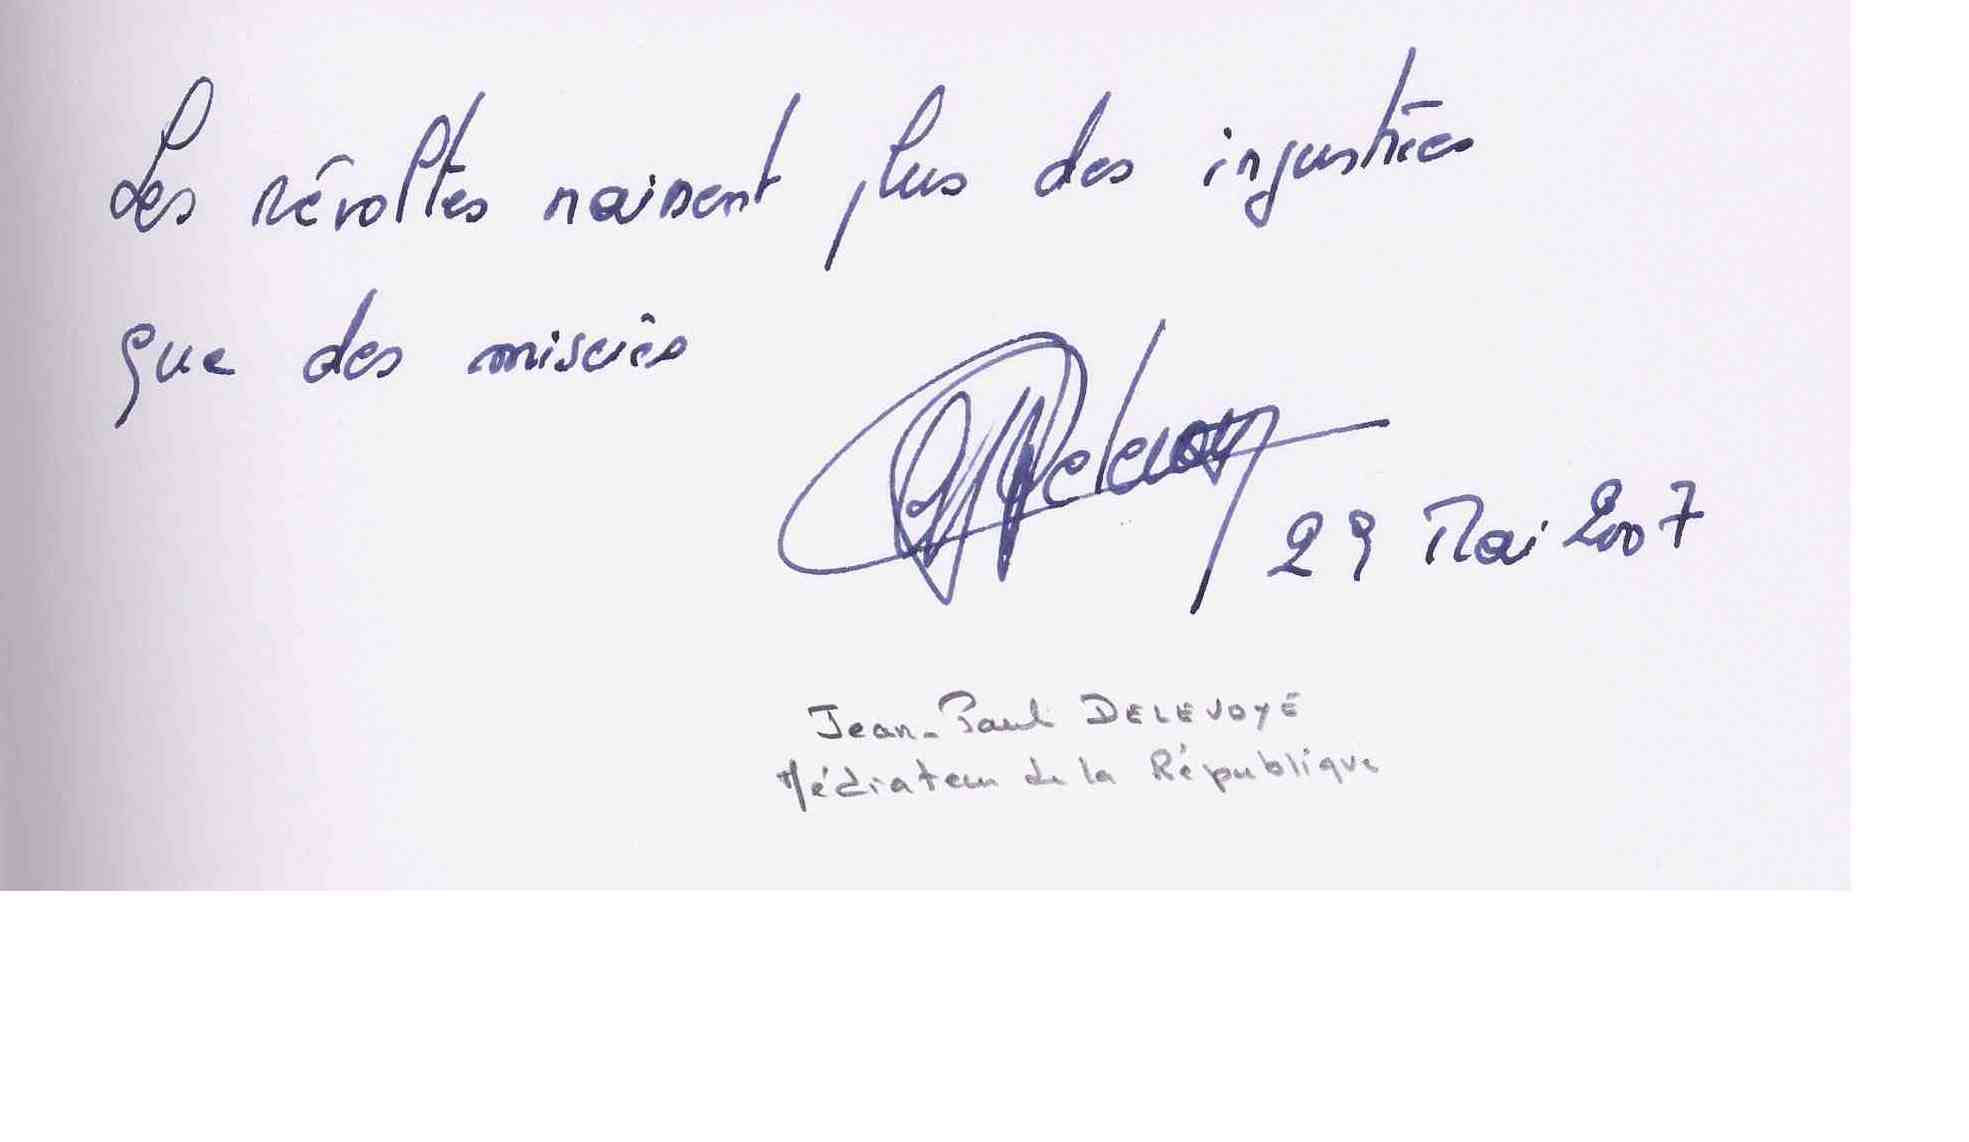 Les révoltes naissent plus des injustices
que des misères
JPDelevoye
29 Mai 2007
Jean-Paul DELEVOYE
Médiateur de la République